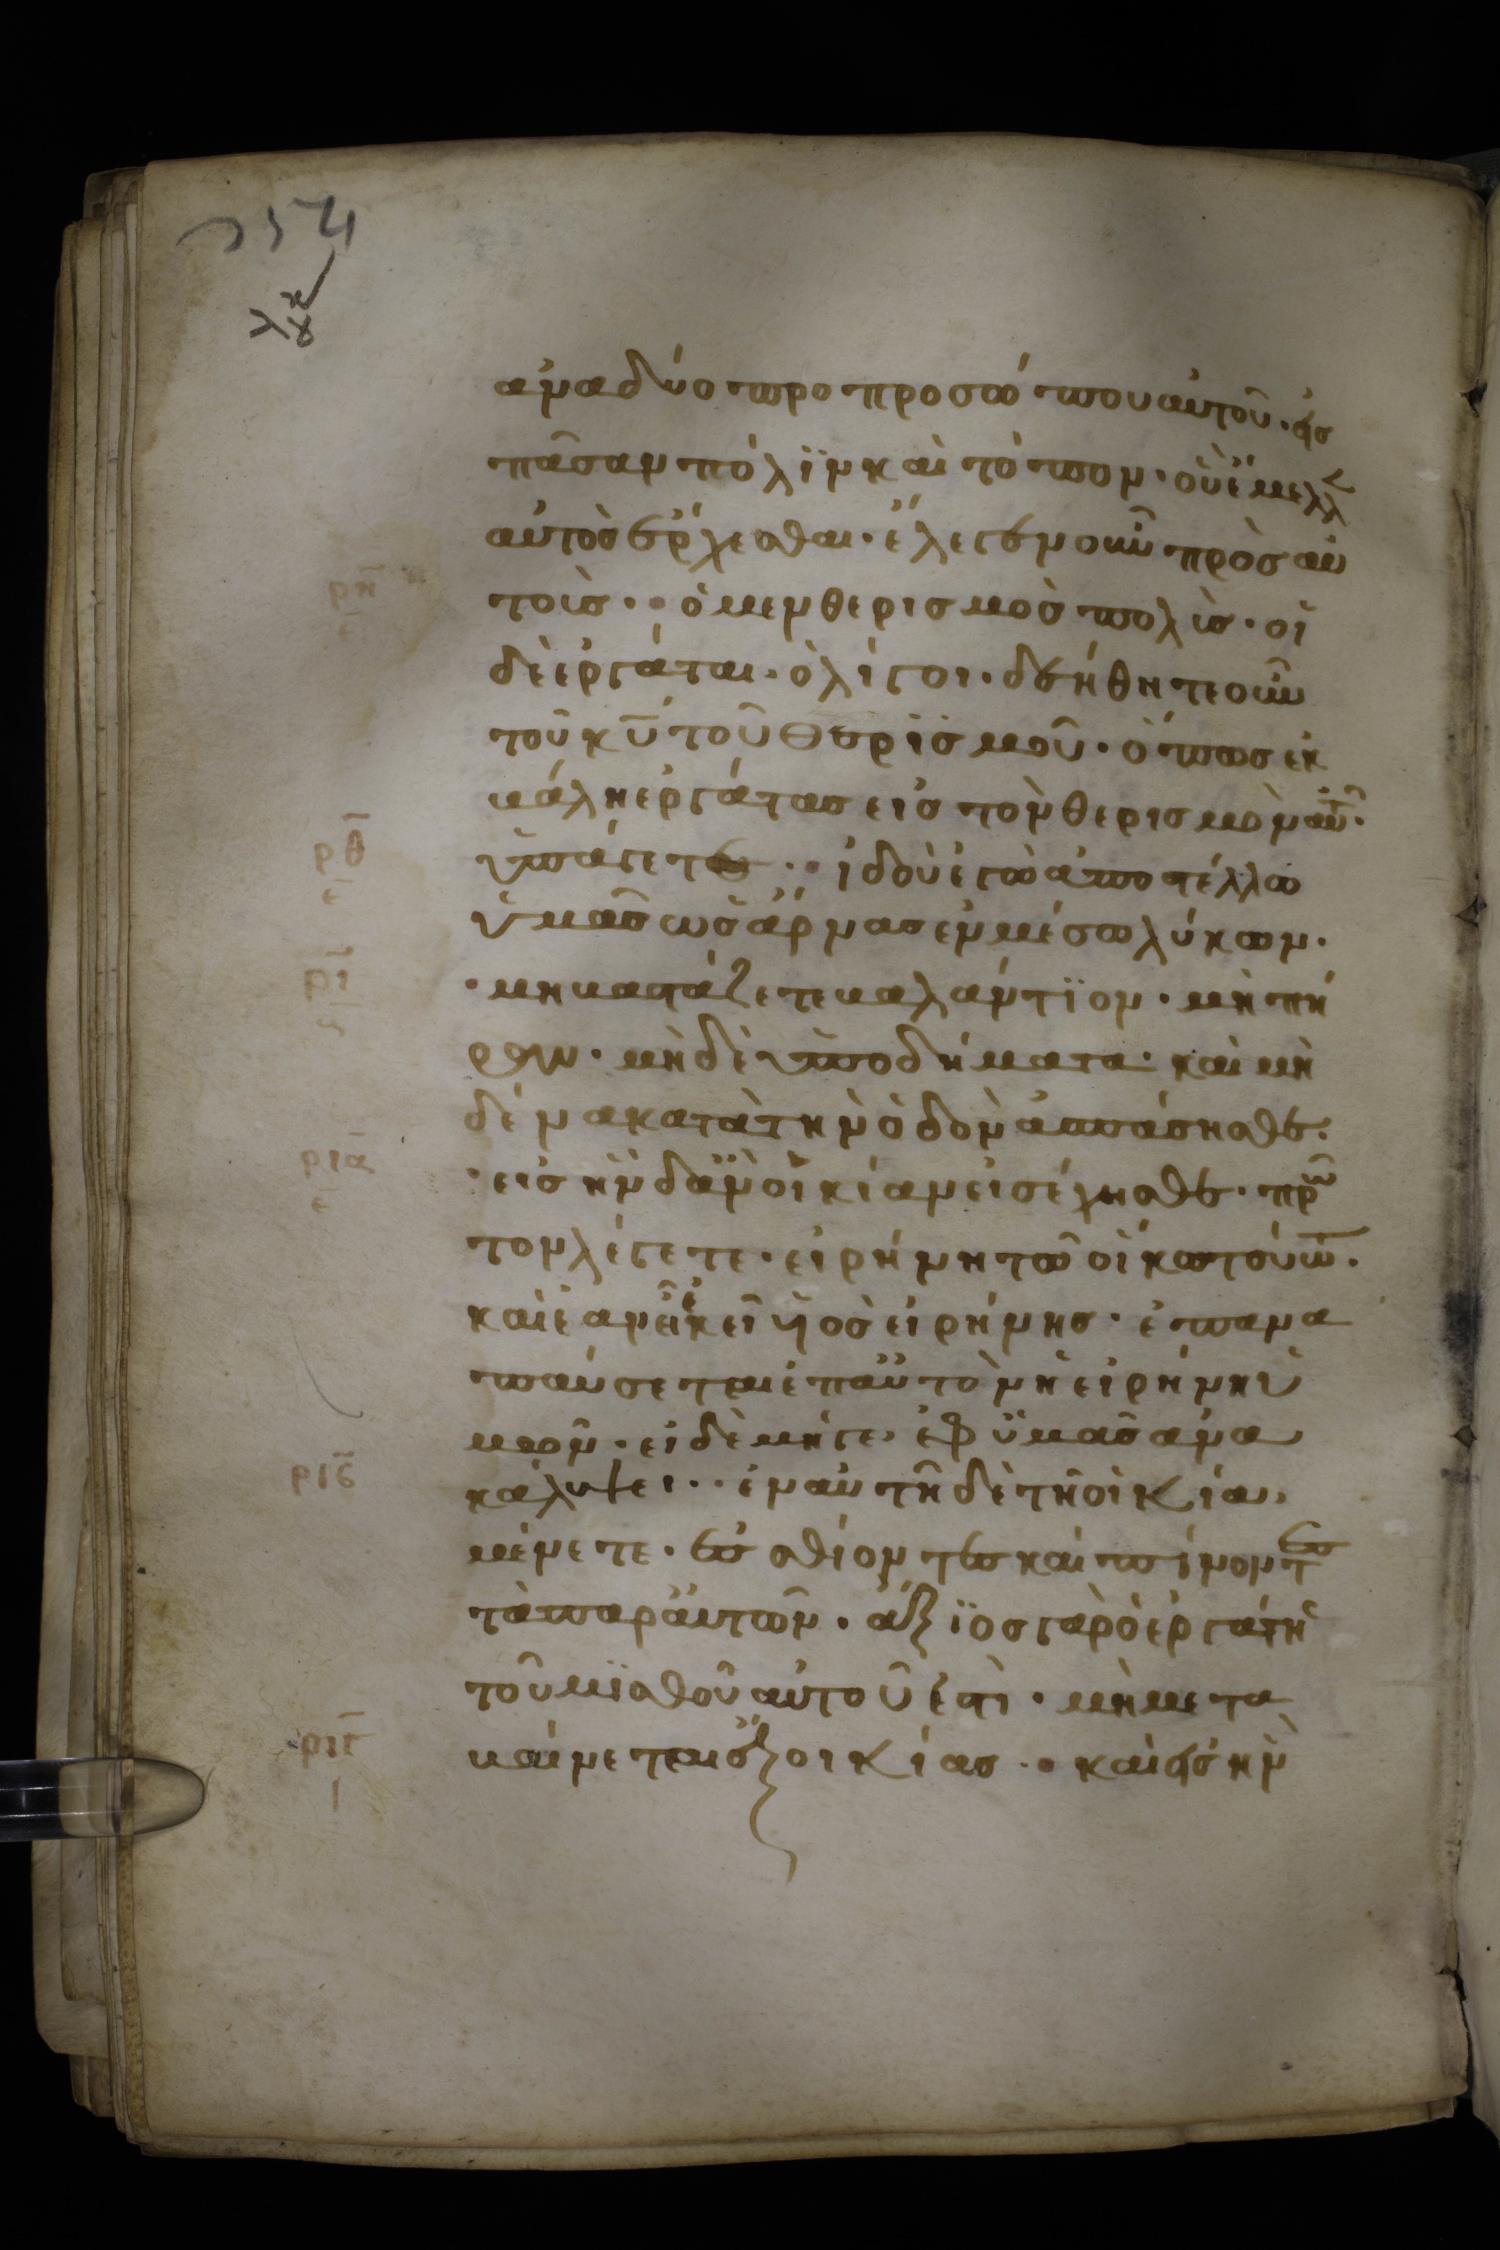 ἀνα δύο προ προσώπου αὐτοῦ· εἰς
πᾶσαν πόλϊν καὶ τόπον· οὗ ἔμελλ
αὐτὸς ἔρχεσθαι· ἔλεγεν οὖν πρὸς αὐ
τοὺς·· ὁ μεν θερισμοσ πολὺς· οἱ
δὲ ἐργάται· ὀλίγοι· δεήθητε οὖν
τοῦ κ̅υ̅ τοῦ θερϊσμοῦ· ὅπωσ ἐκ
βάλη ἐργάτασ εἰσ τὸν θερισμὸν αὐτοῦ·
ὑπάγετε·· ἰδοὺ ἐγὼ ἀποστέλλω
ὑμᾶσ ὡσ ἄρνασ ἐν μέσω λύκων·
· μη βαστάζετε βαλάντϊον· μὴ πή
ραν· μὴδὲ ὑποδήματα· καὶ μη
δένα κατὰ τὴν ὁδὸν ἀσπάσησθε·
· εἰσ ἣν δἂν οἰκίαν εἰσέλθησθε· πρῶ
τον λέγετε· εἰρήνη τῶ οἴκω τούτω·
καὶ ἐὰν ἦ ἐκεῖ ὑὸσ εἰρήνησ· ἐπανα
παύσεται ἐπ αὐτὸν ἡ εἰρήνη ὑ
μῶν· εἰ δὲ μήγε ἐφ ὑμᾶσ ἀνα
κάμψει·· ἐν αὐτῆ δὲ τῆ οἰκία
μένετε· ἐσθίοντεσ καὶ πίνοντεσ
τὰ παρ αὐτῶν· ἄξϊοσ γὰρ ὁ ἐργάτης
τοῦ μϊσθοῦ αὐτοῦ ἐστὶ· μὴ μετα
βαίνετε ἐξ οἰκίασ·· καὶ εἰς ἣν
ρ̅η̅
ρ̅θ̅
ε
ρ̅ι̅
ρ̅ι̅α̅
ε
ρ̅ι̅β̅
ρ̅ι̅γ̅
ι